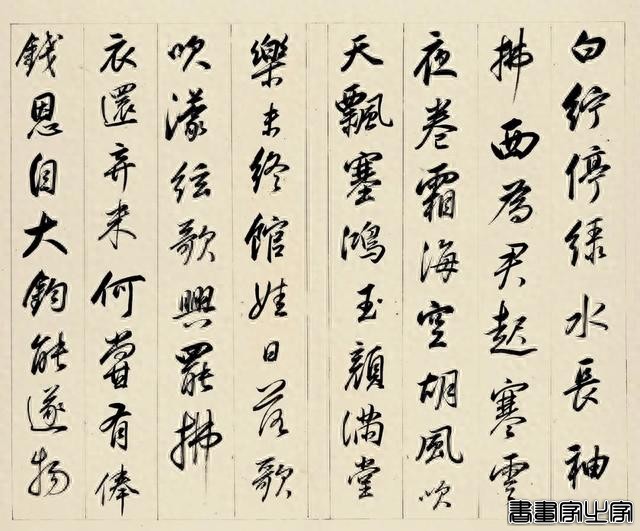 白紵停綠水長袖
拂面為君起寒雲
夜卷霜海空胡風吹
天飄塞鴻玉顏滿堂
樂未終館娃日落歌
吹濛絃歌興罷拂
衣還弃来何當有俸
錢恩自大鈞能遂物